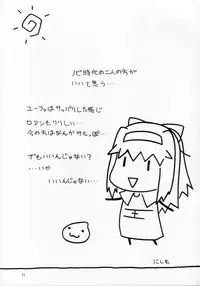 ノビ時代の二人の方が
いいと思う…
ユーファはサッパリした感じ
ロアンもりりしい…
今の方はなんかサルっぽ…
でもいいんじゃない?
…いや
いいんじゃない…
にしも